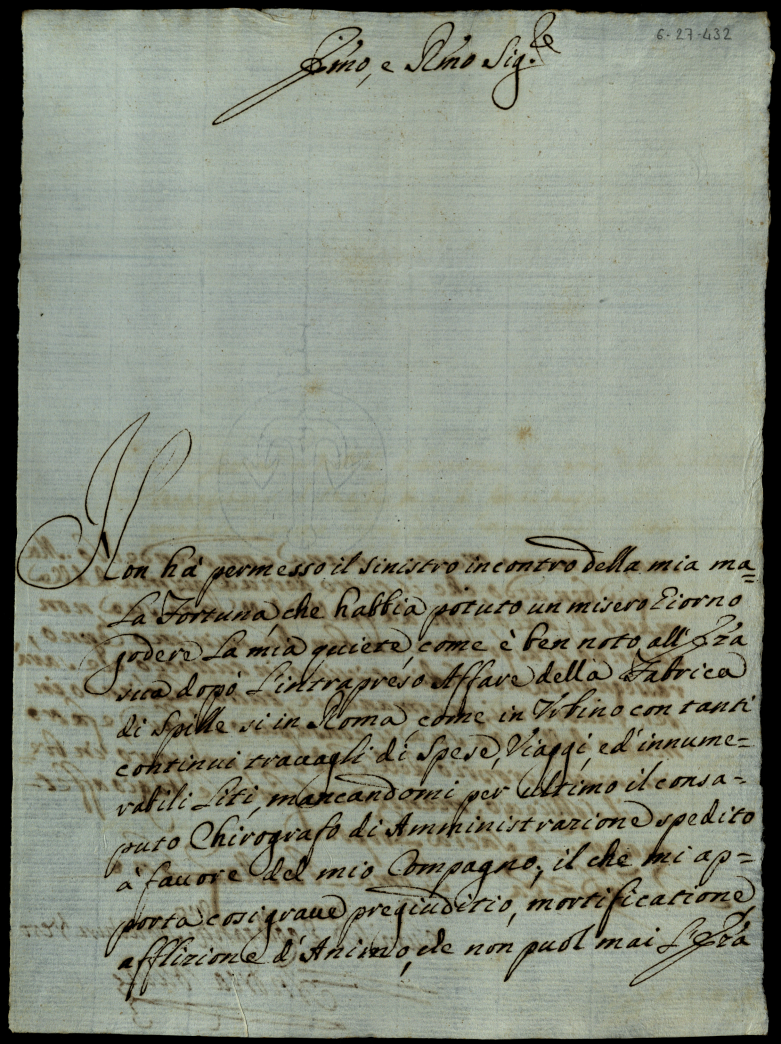 6-27-432
Illmo, e Rmo Sig.re
Non hà permesso il sinistro incontro della mia ma=
la Fortuna, che habbia potuto un misero Giorno
godere la mia quiete, come è ben noto all'
sua dopò l'intrapreso Affare della Fabrica
di Spille sì in Roma, come in Urbino con tanti
continui trauagli di Spese, Viaggi, ed' innume=
rabili Liti, mancandomi per ultimo il consa=
puto Chirografo di Amministrazione spedito
à fauore del mio Compagno, il che mi ap=
porta cosi graue pregiuditio, mortificatione,
afflizione d'Animo, che non puol mai